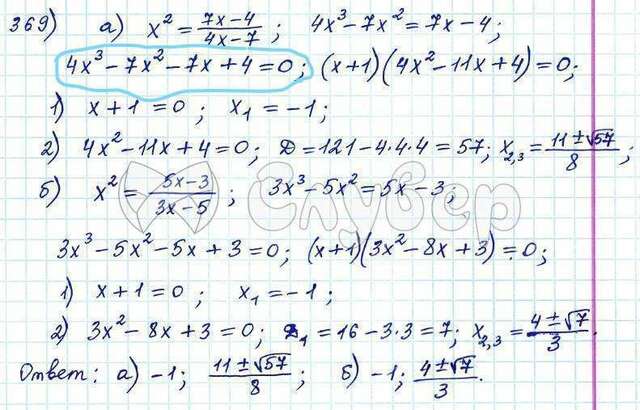 369) а) x² = (7x-4)/(4x-7); 4x³-7x²=7x-4;
4x³-7x²-7x+4=0; (x+1)(4x²-11x+4)=0;
1) x+1=0; x₁=-1;
2) 4x²-11x+4=0; D=121-4·4·4=57; x₂,₃=(11±√57)/8;
б) x² = (5x-3)/(3x-5); 3x³-5x²=5x-3;
Глувер
3x³-5x²-5x+3=0; (x+1)(3x²-8x+3)=0;
1) x+1=0; x₁=-1;
2) 3x²-8x+3=0; D₁=16-3·3=7; x₂,₃=(4±√7)/3.
Ответ: а) -1; (11±√57)/8; б) -1; (4±√7)/3.